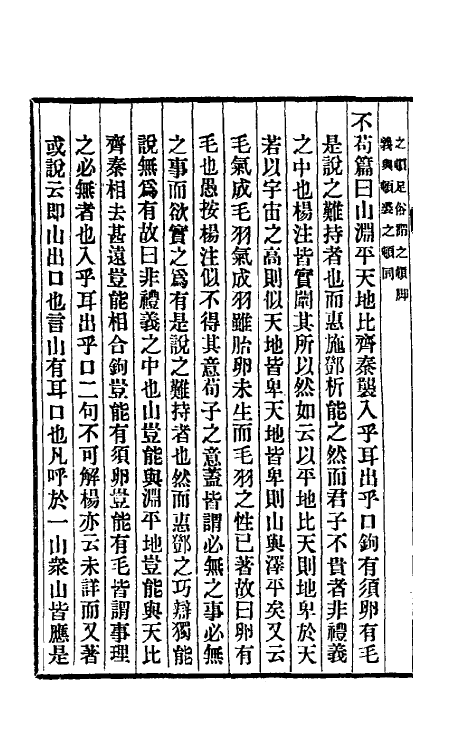 之頓足俗謂之頓脚
義與頓裘之頓同
不苟篇曰山淵平天地比齊秦襲入乎耳出乎口鉤有須卵有毛
是說之難持者也而惠施鄧析能之然而君子不貴者非禮義
之中也楊注皆實闡其所以然如云以平地比天則地卑於天
若以宇宙之高則似天地皆卑天地皆卑則山與澤平矣又云
毛氣成毛羽氣成羽雖胎卵未生而毛羽之性已著故曰卵有
毛也愚按楊注似不得其意荀子之意蓋皆謂必無之事必無
之事而欲實之爲有是說之難持者也然而惠鄧之巧辯獨能
說無爲有故曰非禮義之中也山豈能與淵平地豈能與天比
齊秦相去甚遠豈能相合鉤豈能有須卵豈能有毛皆謂事理
之必無者也入乎耳出乎口二句不可解楊亦云未詳而又著
或說云卽山出口也言山有耳口也凡呼於一山衆山皆應是